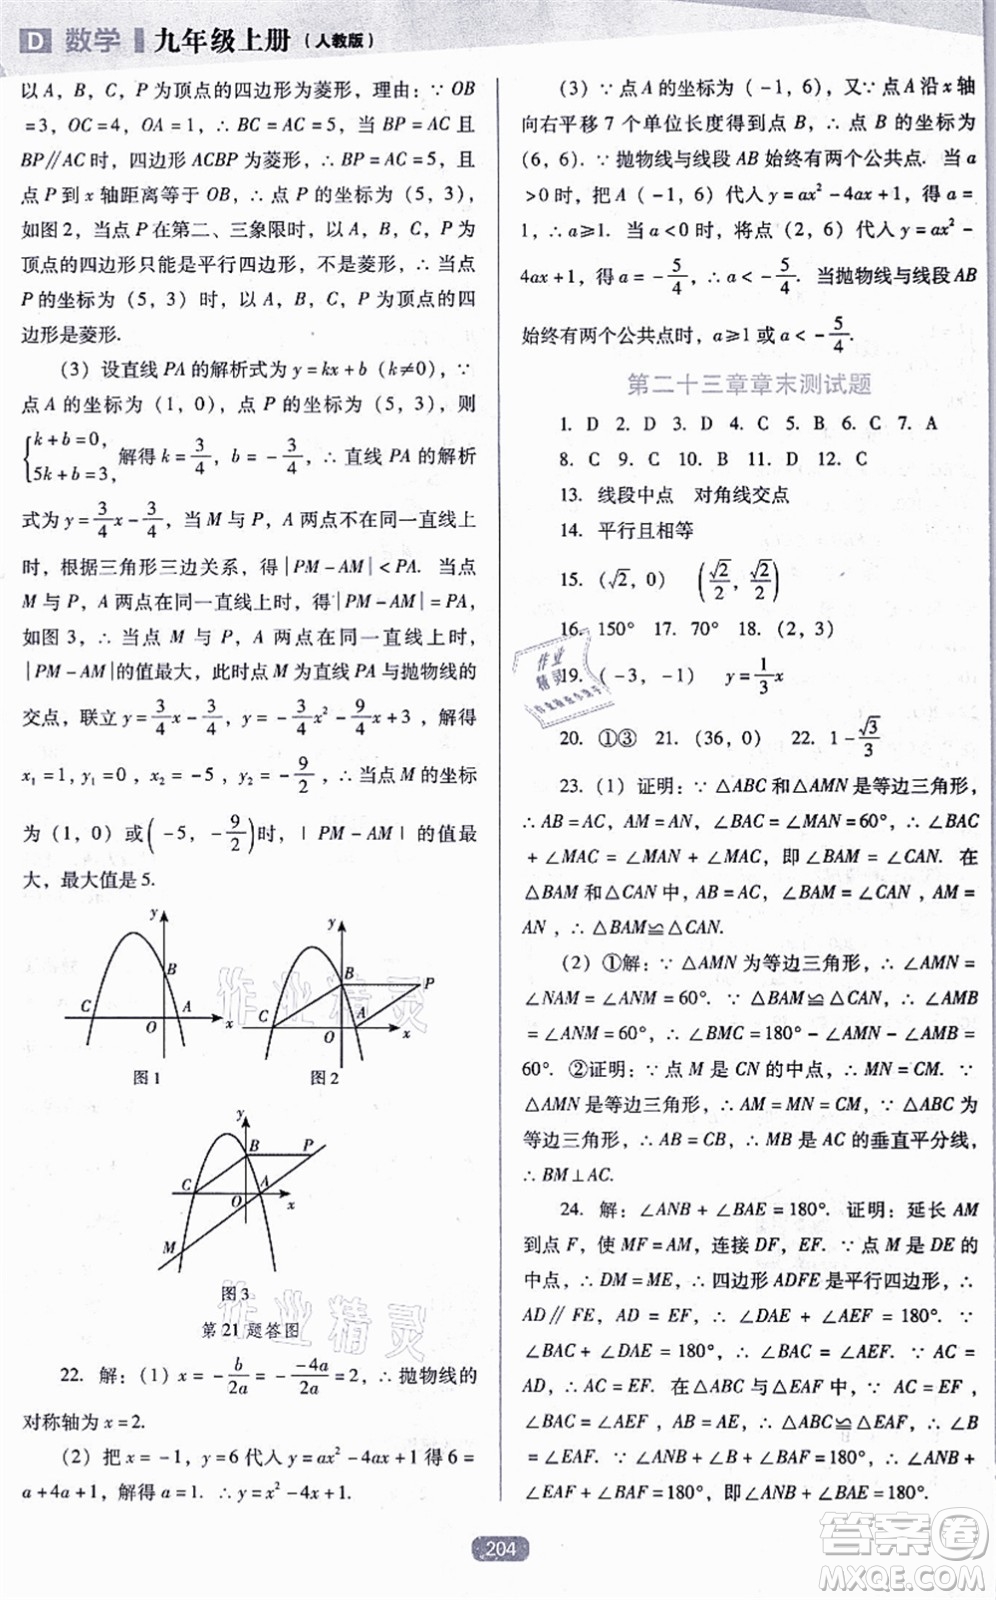 D 数学 九年级上册（人教版）
以 A，B，C，P 为顶点的四边形为菱形，理由：∵ OB
=3，OC=4，OA=1，∴ BC=AC=5，当 BP=AC 且
BP∥AC 时，四边形 ACBP 为菱形，∴ BP=AC=5，且
点 P 到 x 轴距离等于 OB，∴ 点 P 的坐标为（5，3），
如图 2，当点 P 在第二、三象限时，以 A，B，C，P 为
顶点的四边形只能是平行四边形，不是菱形，∴ 当点
P 的坐标为（5，3）时，以 A，B，C，P 为顶点的四
边形是菱形.
（3）设直线 PA 的解析式为 y=kx+b（k≠0），∵
点 A 的坐标为（1，0），点 P 的坐标为（5，3），则
{k+b=0，5k+b=3，解得 k=3/4，b=-3/4，∴ 直线 PA 的解析
式为 y=3/4x-3/4，当 M 与 P，A 两点不在同一直线上
时，根据三角形三边关系，得 |PM-AM|<PA. 当点
M 与 P，A 两点在同一直线上时，得 |PM-AM|=PA，
如图 3，∴ 当点 M 与 P，A 两点在同一直线上时，
|PM-AM|的值最大，此时点 M 为直线 PA 与抛物线的
交点，联立 y=3/4x-3/4，y=-3/4x²-9/4x+3，解得
x₁=1，y₁=0，x₂=-5，y₂=-9/2，∴ 当点 M 的坐标
为（1，0）或(-5，-9/2)时，|PM-AM| 的值最
大，最大值是 5.
y B C A O x
图 1
y B P C O A x
图 2
y B P C O A x M
图 3
第 21 题答图
22. 解：（1）x=-b/2a=-(-4a)/2a=2，∴ 抛物线的
对称轴为 x=2.
（2）把 x=-1，y=6 代入 y=ax²-4ax+1 得 6=
a+4a+1，解得 a=1. ∴ y=x²-4x+1.
（3）∵ 点 A 的坐标为（-1，6），又∵ 点 A 沿 x 轴
向右平移 7 个单位长度得到点 B，∴ 点 B 的坐标为
（6，6）. ∵ 抛物线与线段 AB 始终有两个公共点. 当 a
>0 时，把 A（-1，6）代入 y=ax²-4ax+1，得 a=
1，∴ a≥1. 当 a<0 时，将点（2，6）代入 y=ax²-
4ax+1，得 a=-5/4，∴ a<-5/4. 当抛物线与线段 AB
始终有两个公共点时，a≥1 或 a<-5/4.
第二十三章章末测试题
1. D 2. D 3. D 4. A 5. B 6. C 7. A
8. C 9. C 10. B 11. D 12. C
13. 线段中点 对角线交点
14. 平行且相等
15. （√2，0） (√2/2，√2/2)
16. 150° 17. 70° 18. （2，3）
19. （-3，-1） y=1/3x
20. ①③ 21. （36，0） 22. 1-√3/3
23. （1）证明：∵ △ABC 和△AMN 是等边三角形，
∴ AB=AC，AM=AN，∠BAC=∠MAN=60°，∴ ∠BAC
+∠MAC=∠MAN+∠MAC，即∠BAM=∠CAN. 在
△BAM 和△CAN 中，AB=AC，∠BAM=∠CAN，AM=
AN，∴ △BAM≌△CAN.
（2）①解：∵ △AMN 为等边三角形，∴ ∠AMN=
∠NAM=∠ANM=60°. ∵ △BAM≌△CAN，∴ ∠AMB
=∠ANM=60°，∴ ∠BMC=180°-∠AMN-∠AMB=
60°. ②证明：∵ 点 M 是 CN 的中点，∴ MN=CM. ∵
△AMN 是等边三角形，∴ AM=MN=CM，∵ △ABC 为
等边三角形，∴ AB=CB，∴ MB 是 AC 的垂直平分线，
∴ BM⊥AC.
24. 解：∠ANB+∠BAE=180°. 证明：延长 AM
到点 F，使 MF=AM，连接 DF，EF. ∵ 点 M 是 DE 的
中点，∴ DM=ME，∴ 四边形 ADFE 是平行四边形，∴
AD∥FE，AD=EF，∴ ∠DAE+∠AEF=180°. ∵
∠BAC+∠DAE=180°，∴ ∠BAC=∠AEF. ∵ AC=
AD，∴ AC=EF. 在△ABC 与△EAF 中，∵ AC=EF，
∠BAC=∠AEF，AB=AE，∴ △ABC≌△EAF，∴ ∠B
=∠EAF. ∵ ∠ANB+∠B+∠BAF=180°，∴ ∠ANB+
∠EAF+∠BAF=180°，即∠ANB+∠BAE=180°.
204
作业精灵
作业精灵
作业精灵
答案卷
MXQE.COM